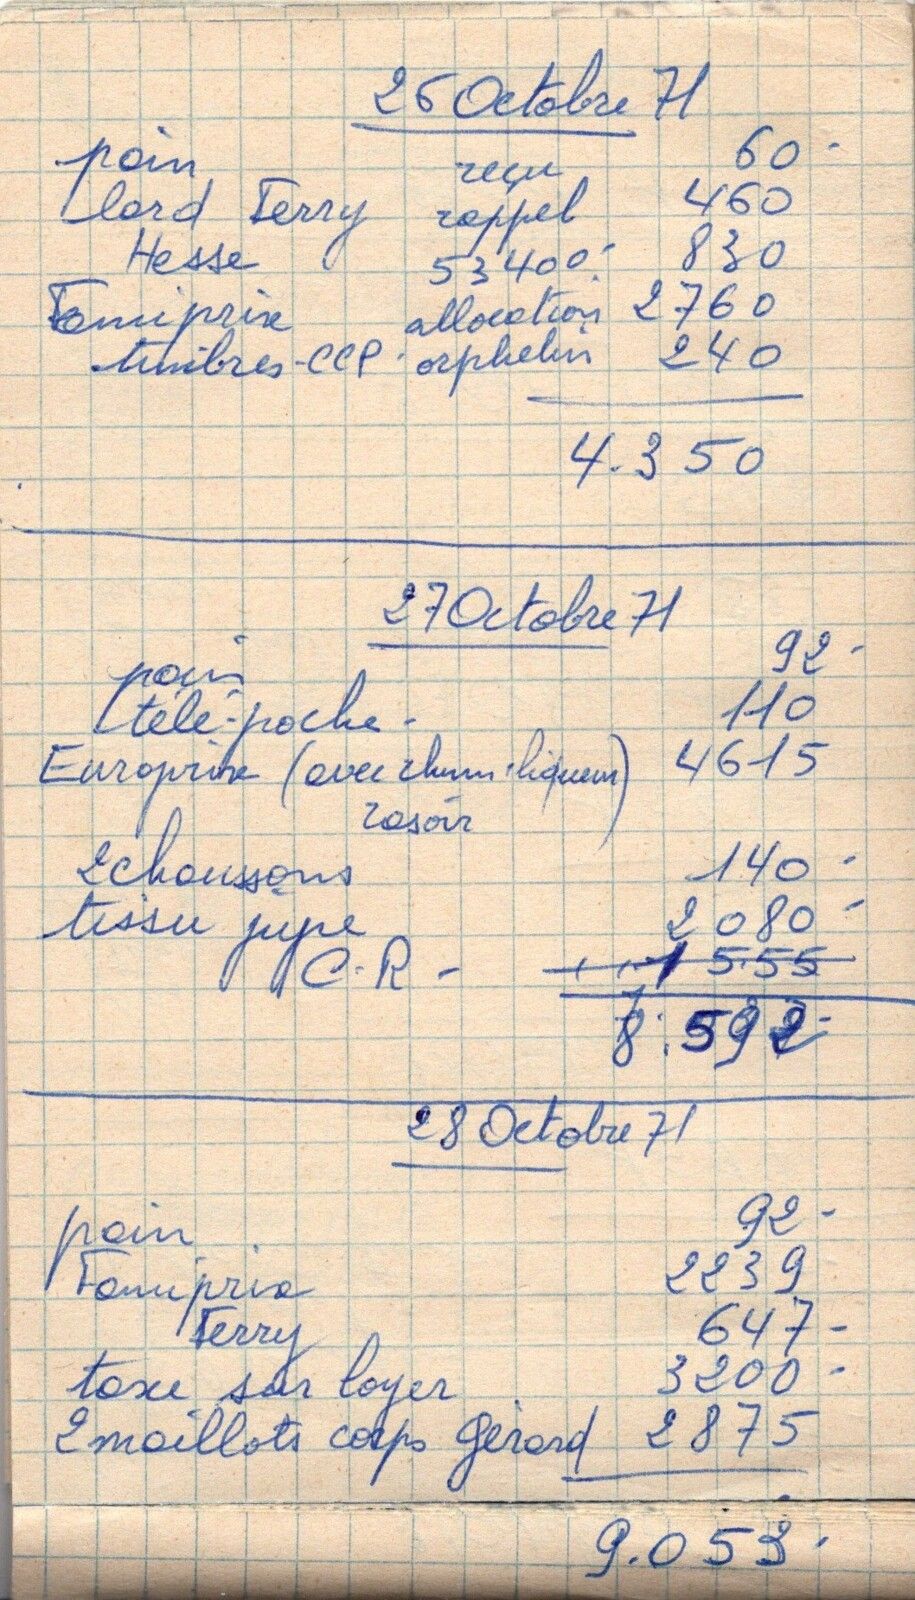 26 Octobre 71
pain reçu 60-
lard Terry rappel 460
Hesse 53400- 830
Famiprix allocation 2760
timbres-CCP. orphelin 240
4.350
27 Octobre 71
pain 92-
télé-poche- 110
Europrix (avec rhum-liqueur) 4615
rasoir
2 chaussons 140-
tissu jupe 2080-
C-R- 1555
8.592-
28 Octobre 71
pain 92-
Famiprix 2239
Terry 647-
taxe sur loyer 3200-
2 maillots corps Gérard 2875
9.053-